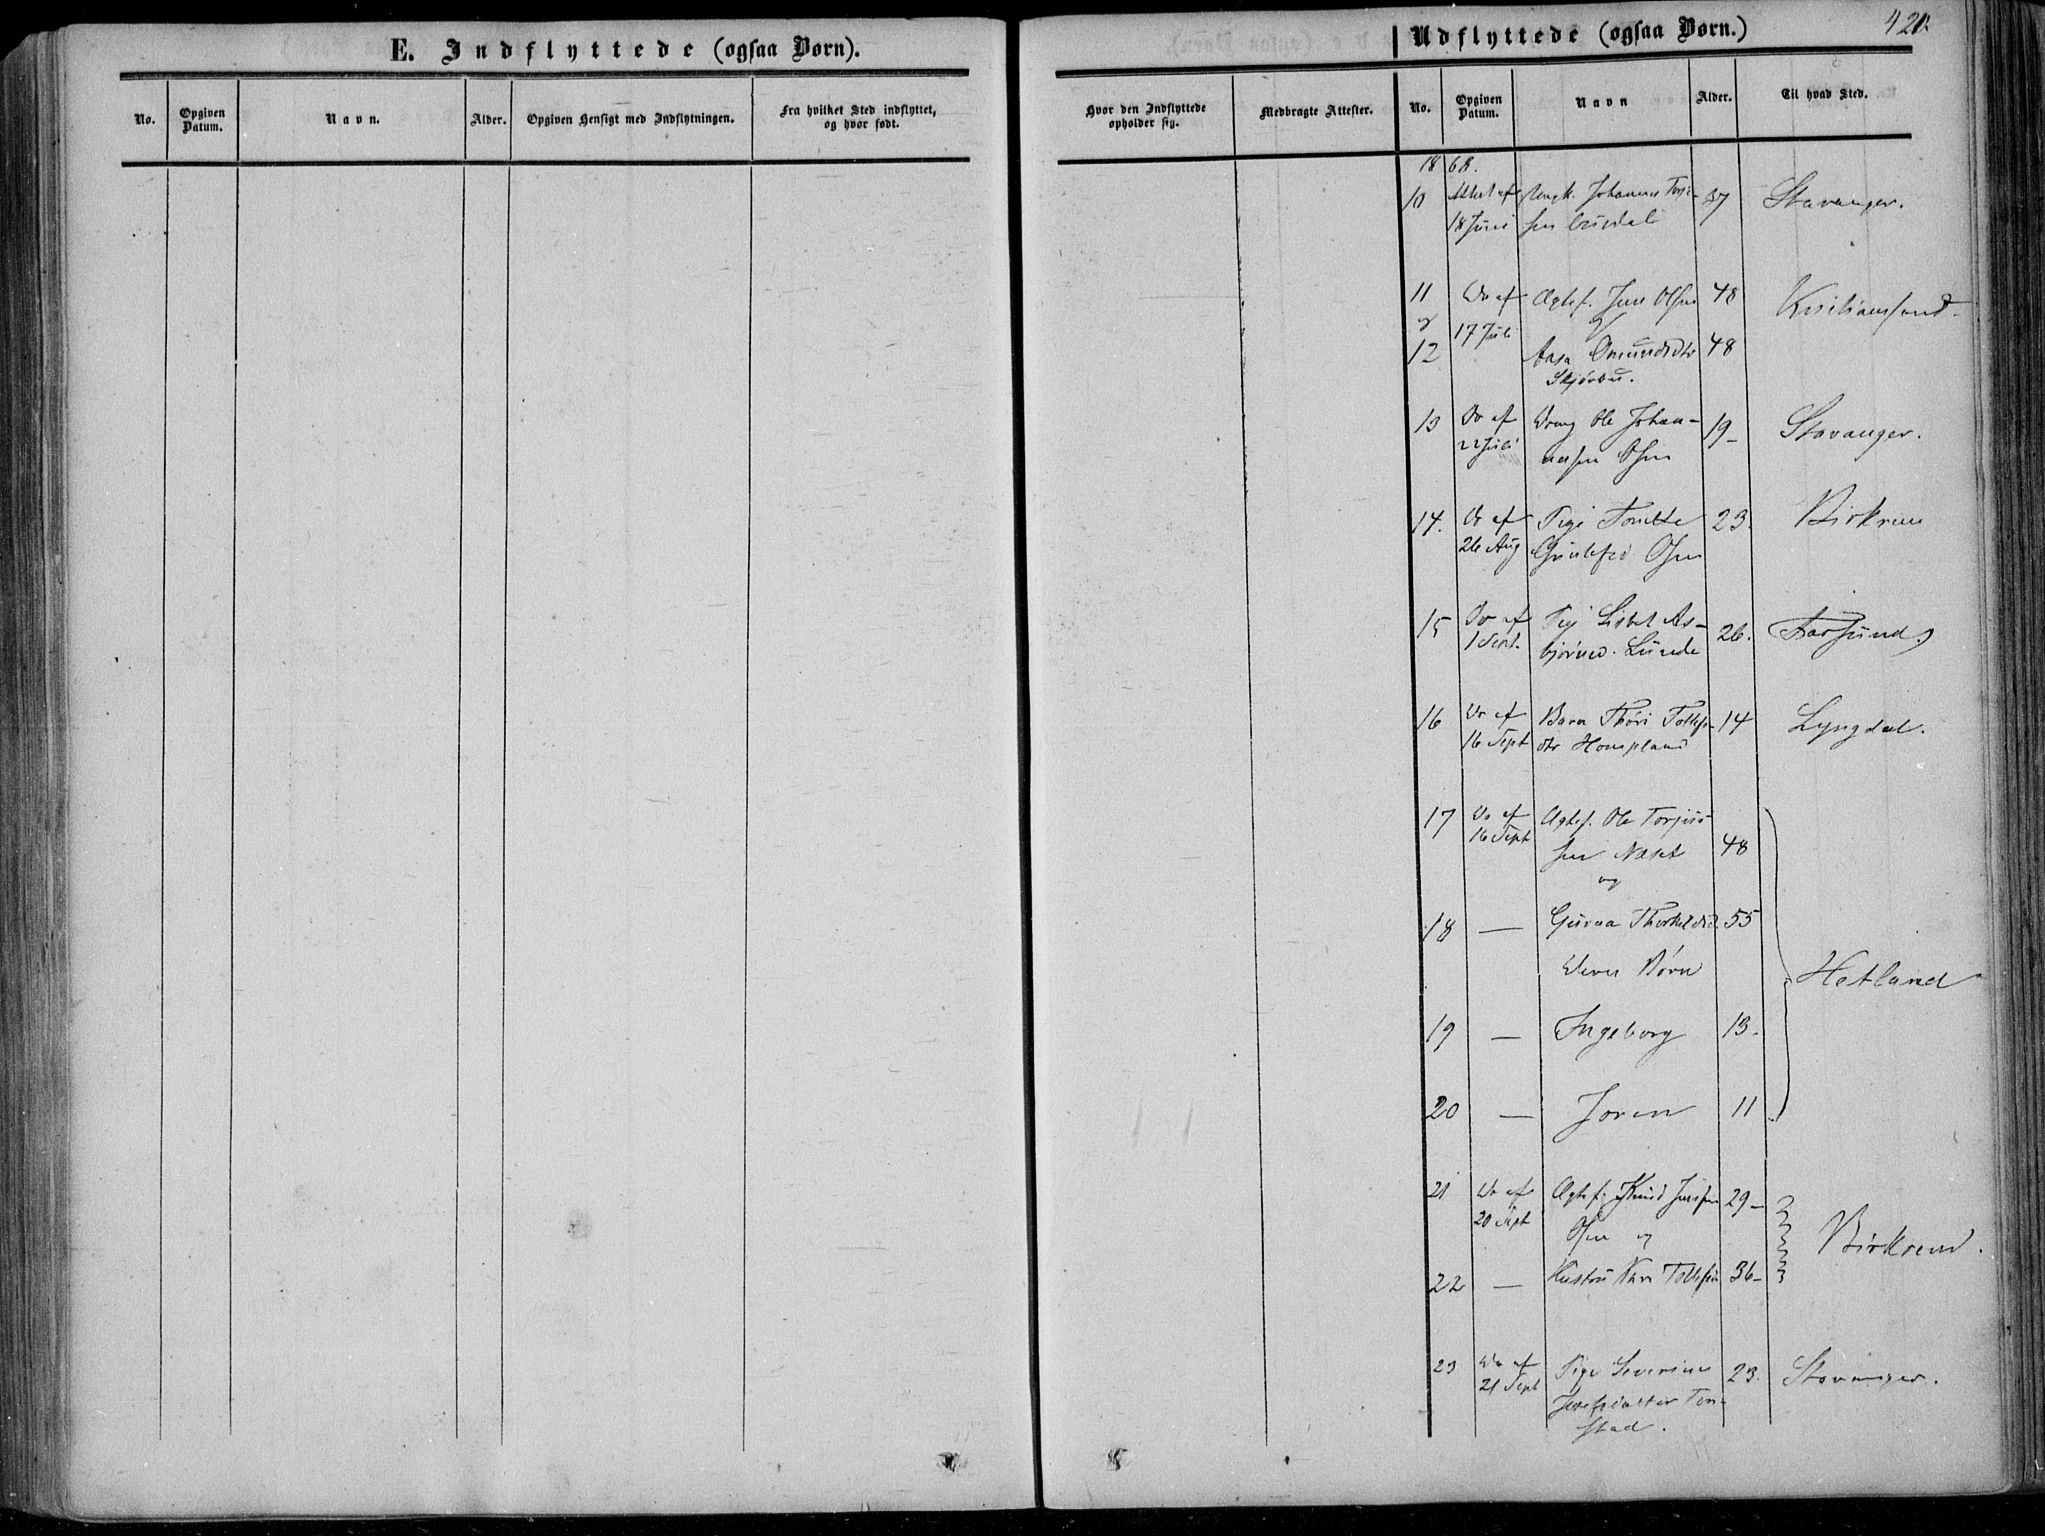 E. Indflyttede (ogsaa Børn).
No.
Opgiven Datum.
Navn.
Alder.
Opgiven Hensigt med Indflytningen.
Fra hvilket Sted indflyttet, og hvor født.
Udflyttede (ogsaa Børn.)
42
Hvor den Indflyttede opholder sig.
Medbragte Attester.
No.
Opgiven Datum.
Navn
Alder.
Til hvad Sted.
1868.
10 Attest af Ungk. Johannes Torje- 37 Stavanger.
18 Juni sen
11 Do af Ægtef. Jens Olsen 48 Kristiansand.
& 17 Juli &
12 Aasa Omundsdtr 48
13 Do af Dreng Ole Johan- 19- Stavanger.
22 Juli nesen Osen
14. Do af Pige Tonette 23. Birkrem
26 Aug Osen
15 Do af Pige Lisbet As- 26. Farsund
1 Sept. bjørnsd. Lunde
16 Do af Barn Thøri Tollefs- 14 Lyngdal.
16 Sept dtr Hompland
17 Do af Ægtef. Ole Torjus-
16 Sept sen Næset 48
og
18 — Gunna Therkelsd. 55
Deres Børn
Hetland
19 — Ingeborg 13.
20 — Joren 11
21 Do af Ægtef. Knud Jensen 29-
20 Sept Osen og
Birkrem.
22 — Hustru Kari Tollefsd. 36-
23 Do af Pige Severine 23. Stavanger.
21 Sept Josefsdatter Ton-
stad.